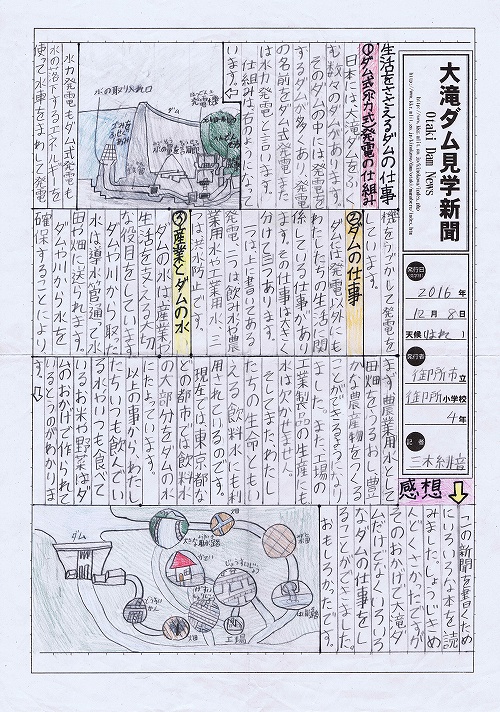 大滝ダム見学新聞
Otaki Dam News
発行日
2016年
12月8日
天候(はれ)
発行者
御所市立
御所小学校
4年
記者
生活をささえるダムの仕事
①ダム式水力式発電の仕組み
日本には、大滝ダムをふく
む数々のダムがあります。
そのダムの中には発電を
するダムが多くあり、発電
の名前をダム式発電また
は水力発電と言います。
仕組みは右のようになって
います。
水の取り入れ口
ダム
水力発電もダム式発電も
水の落下するエネルギーを
使って水車をまわして発電
機をうごかして発電を
しています。
②ダムの仕事
ダムには発電以外にも
わたしたちの生活に関
係している仕事があり
ます。その仕事は大きく
分けて三つあります。
一つは、上に書いてある
発電、二つは飲み水や農
業用水や工業用水、三
つは洪水防止です。
③産業とダムの水
ダムの水は産業や
生活を支える大切
な役目をしています。
ダムや川から取った
水は導水管を通って水
田や畑に送られます。
ダムや川から水を
確保することにより
まず農業用水として
田畑をうるおし、豊
かな農産物をつくる
ことができるようになり
ました。また、工場の
工業製品の生産にも
水は欠かせません。
そしてまたわたし
たちの生命ともい
える飲料水にも利
用されているのです。
現在では、東京都な
どの都市では飲料水
の大部分をダムの水
にたよっています。
以上の事から、わたし
たちがいつも飲んでい
る水やいつも食べて
いるお米や野菜はダ
ムのおかげで作られて
いるということがわかりま
す。
ダム
工場
感想
この新聞を書くため
にいろいろな本を読
みました。しょうじきめ
んどくさかったですが
そのおかげで大滝ダ
ムだけでなくいろいろ
なダムの仕事をし
ることができました。
おもしろかったです。